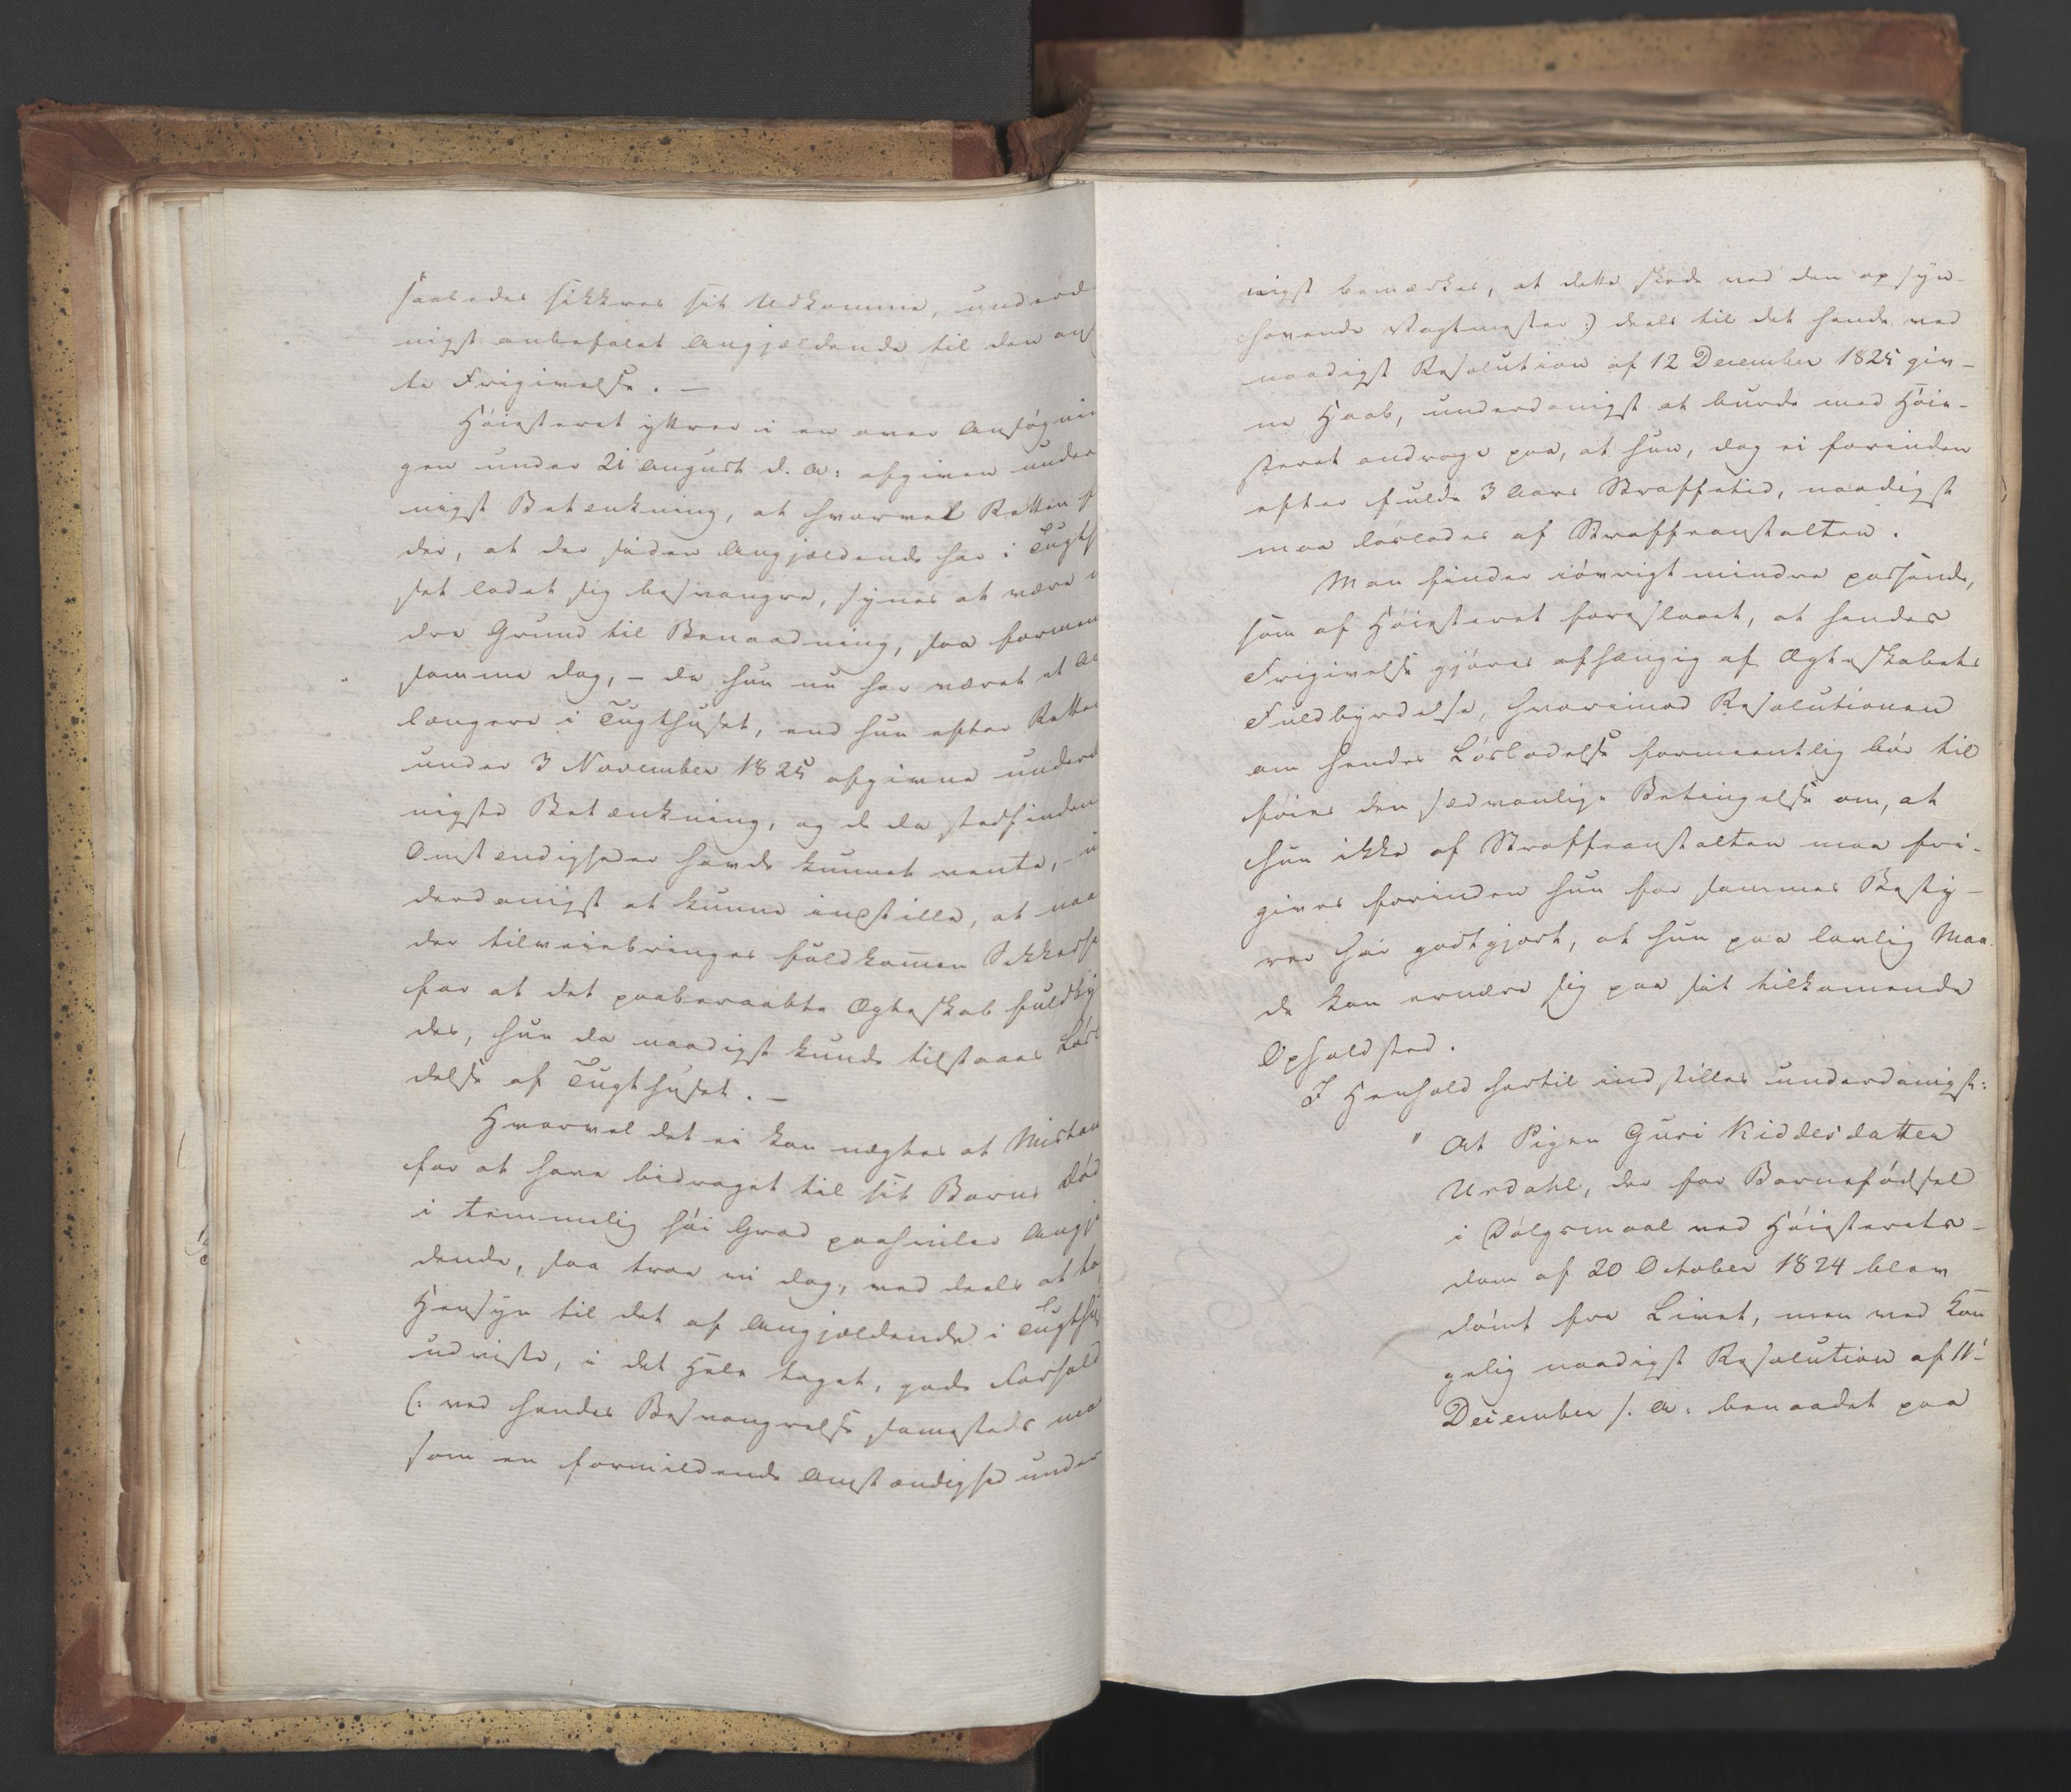 saaledes sikkres sit Udkomme, underd
nigst anbefalet Angjældende til den ans
te Frigivelse. —
Høiesteret yttrer i en over Ansøgnin
gen under 21 August d. A: afgiven under
nigst Betænkning, at hvorvel Retten f
der, at der siden Angjældende har i Tugth
set ladet sig besvangre, synes at være m
dre Grund til Benaadning, saa formen
samme dog, – da hun nu har været et Aa
længere i Tugthuset, end hun efter Rettes
under 3 November 1825 afgivne underd
nigste Betænkning, og de da stedfinden
Omstændigheder havde kunnet vente, – u
derdanigst at kunne indstille, at naa
der tilveiebringes fuldkommen Sikkerhe
for at det paaberaabte Ægteskab fuldby
des, hun da naadigst kunde tilstaaes Løsl
delse af Tugthuset. —
Hvorvel det ei kan nægtes at Mistan
for at have bidraget til sit Barns Død
i temmelig høi Grad paahviler Angjæ
dende, saa troe vi dog, ved deels at ta
Hensyn til det af Angjældende i Tugthu
udviste, i det Hele taget, gode Forhold
(: ved hendes Besvangrelse samesteds maa
som en formildende Omstændighed under
nigst bemærkes, at dette skede ved den opsyn-
havende Vagtmester :) deels til det hende ved
naadigst Resolution af 12 December 1825 giv-
ne Haab, underdanigst at burde med Høie-
steret andrage paa, at hun, dog ei forinden
efter fulde 3 Aars Straffetid, naadigst
maa løslades af Straffeanstalten.
Man finder iøvrigt mindre passende,
som af Høiesteret foreslaaet, at hendes
Frigivelse gjøres afhængig af Ægteskabets
Fuldbyrdelse, hvorimod Resolutionen
om hendes Løsladelse formeentlig bør til
føies den sædvanlige Betingelse om, at
hun ikke af Straffeanstalten maa fri-
gives forinden hun for sammes Besty-
rer har godtgjort, at hun paa lovlig Maa
de kan ernære sig paa sit tilkommende
Opholdsted.
I Henhold hertil indstilles underdanigst:
" At Pigen Guri Kiddelsdatter
Urdahl, der for Barnefødsel
i Dølgsmaal ved Høiesterets-
dom af 20 October 1824 blev
dømt fra Livet, men ved Kon
gelig naadigst Resolution af 11te
December s. A: benaadet paa